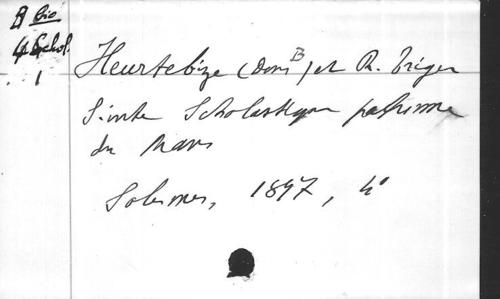 B Bio
4 Schol.
1
Heurtebize (Dom B) et R. Triger
Sainte Scholastique patronne
du Mans
Solesmes, 1897, 4°